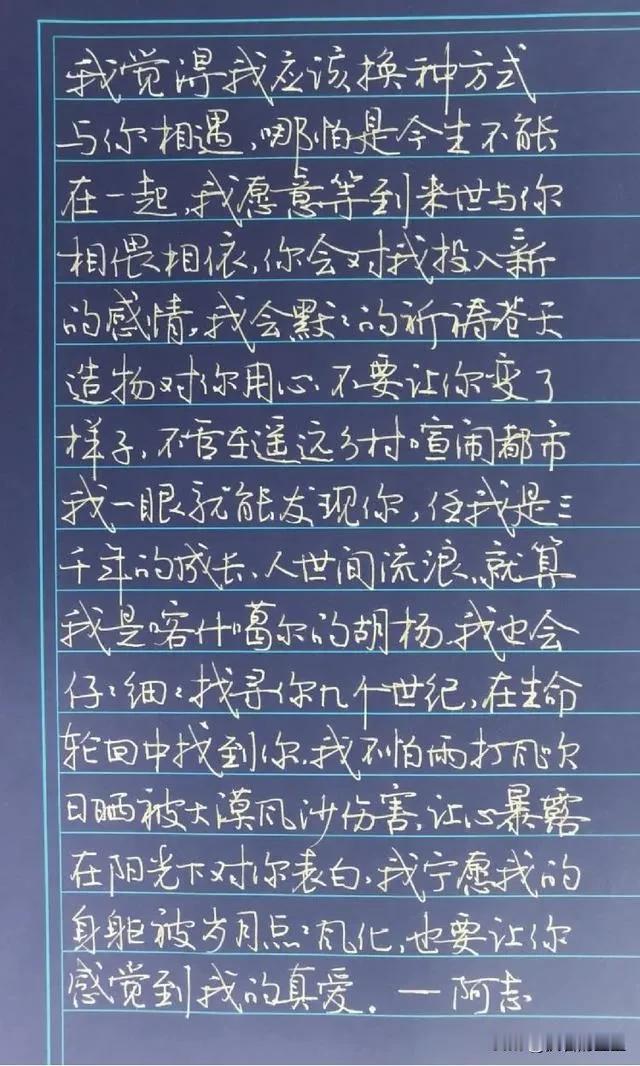 我觉得我应该换种方式
与你相遇,哪怕是今生不能
在一起,我愿意等到来世与你
相偎相依,你会对我投入新
的感情,我会默:的祈祷苍天
造物对你用心.不要让你变了
样子,不管在遥远乡村喧闹都市
我一眼就能发现你,任我是三
千年的成长、人世间流浪,就算
我是喀什噶尔的胡杨.我也会
仔:细:找寻你九个世纪,在生命
轮回中找到你,我不怕雨打风吹
日晒被大漠风沙伤害,让心暴露
在阳光下对你表白,我宁愿我的
身躯被岁月点:风化,也要让你
感觉到我的真爱.一阿志